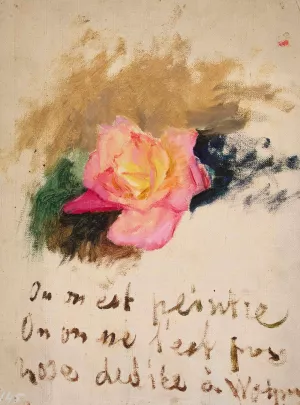 On on est peintre
On on ne l'est pas
Rose dediée à